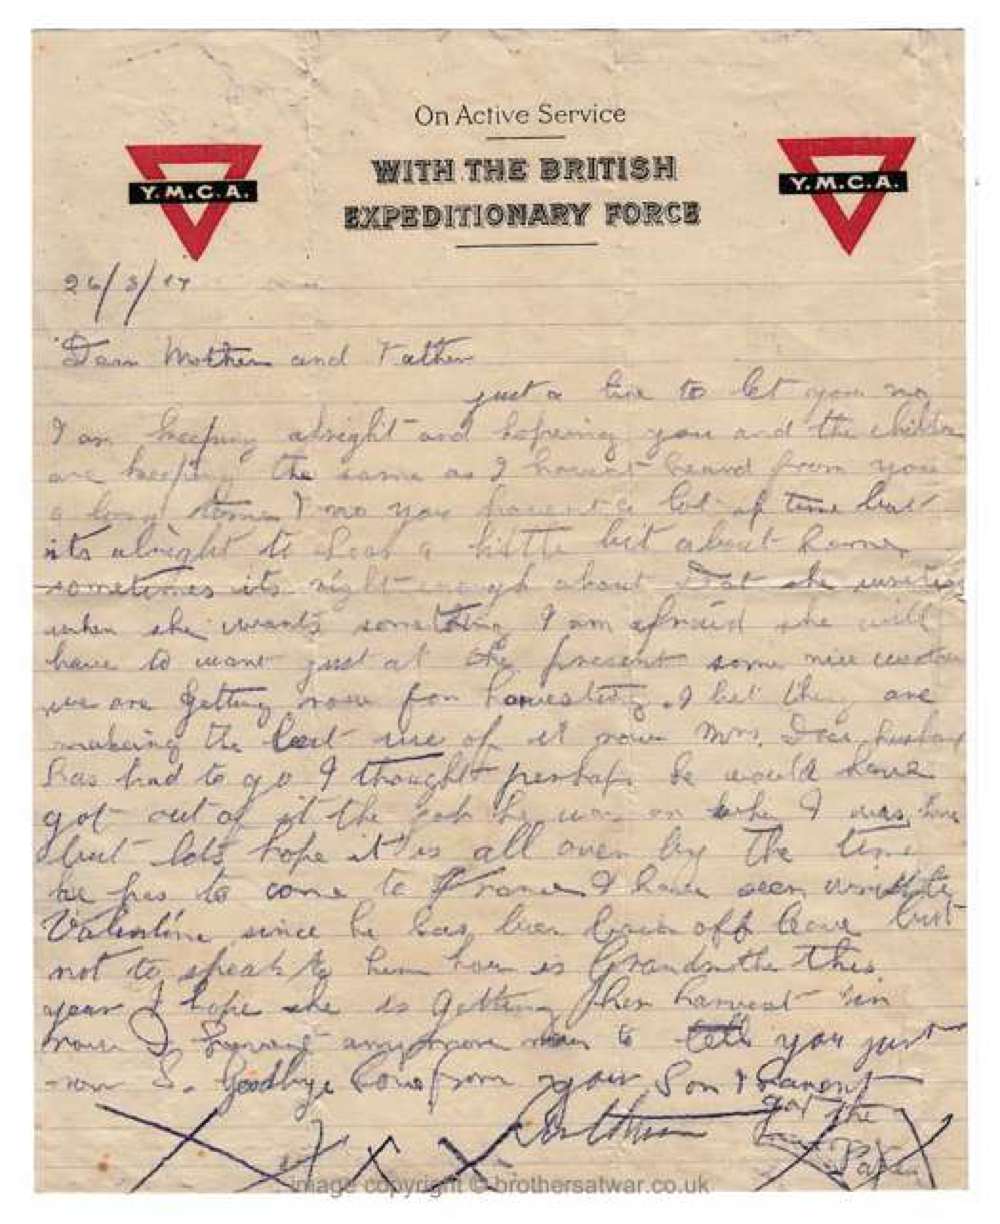 On Active Service
WITH THE BRITISH
EXPEDITIONARY FORCE
Y.M.C.A.
Y.M.C.A.
26/8/17
Dear Mother and Father
just a line to let you no
I am keeping alright and hopeing you and the children
are keeping the same as I havent heard from you
a long time I no you havent a lot of time but
its alright to hear a little bit about home
sometimes its right enough about Dot she writes
when she wants something I am afraid she will
have to want just at the present some nice weather
we are getting now for harvesting. I bet they are
makeing the best use of it now Mrs. husband
has had to go I thought perhaps he would have
got out of it the job he was on when I was home
but lets hope it is all over by the time
he has to come to France I have seen
Valentine since he has been back off leave but
not to speak to him how is Grandmother this
year I hope she is getting her harvest in
now I havent anymore news to tell you just
now So Goodbye love from your Son
Arthur
got the
Paper
image copyright © brothersatwar.co.uk